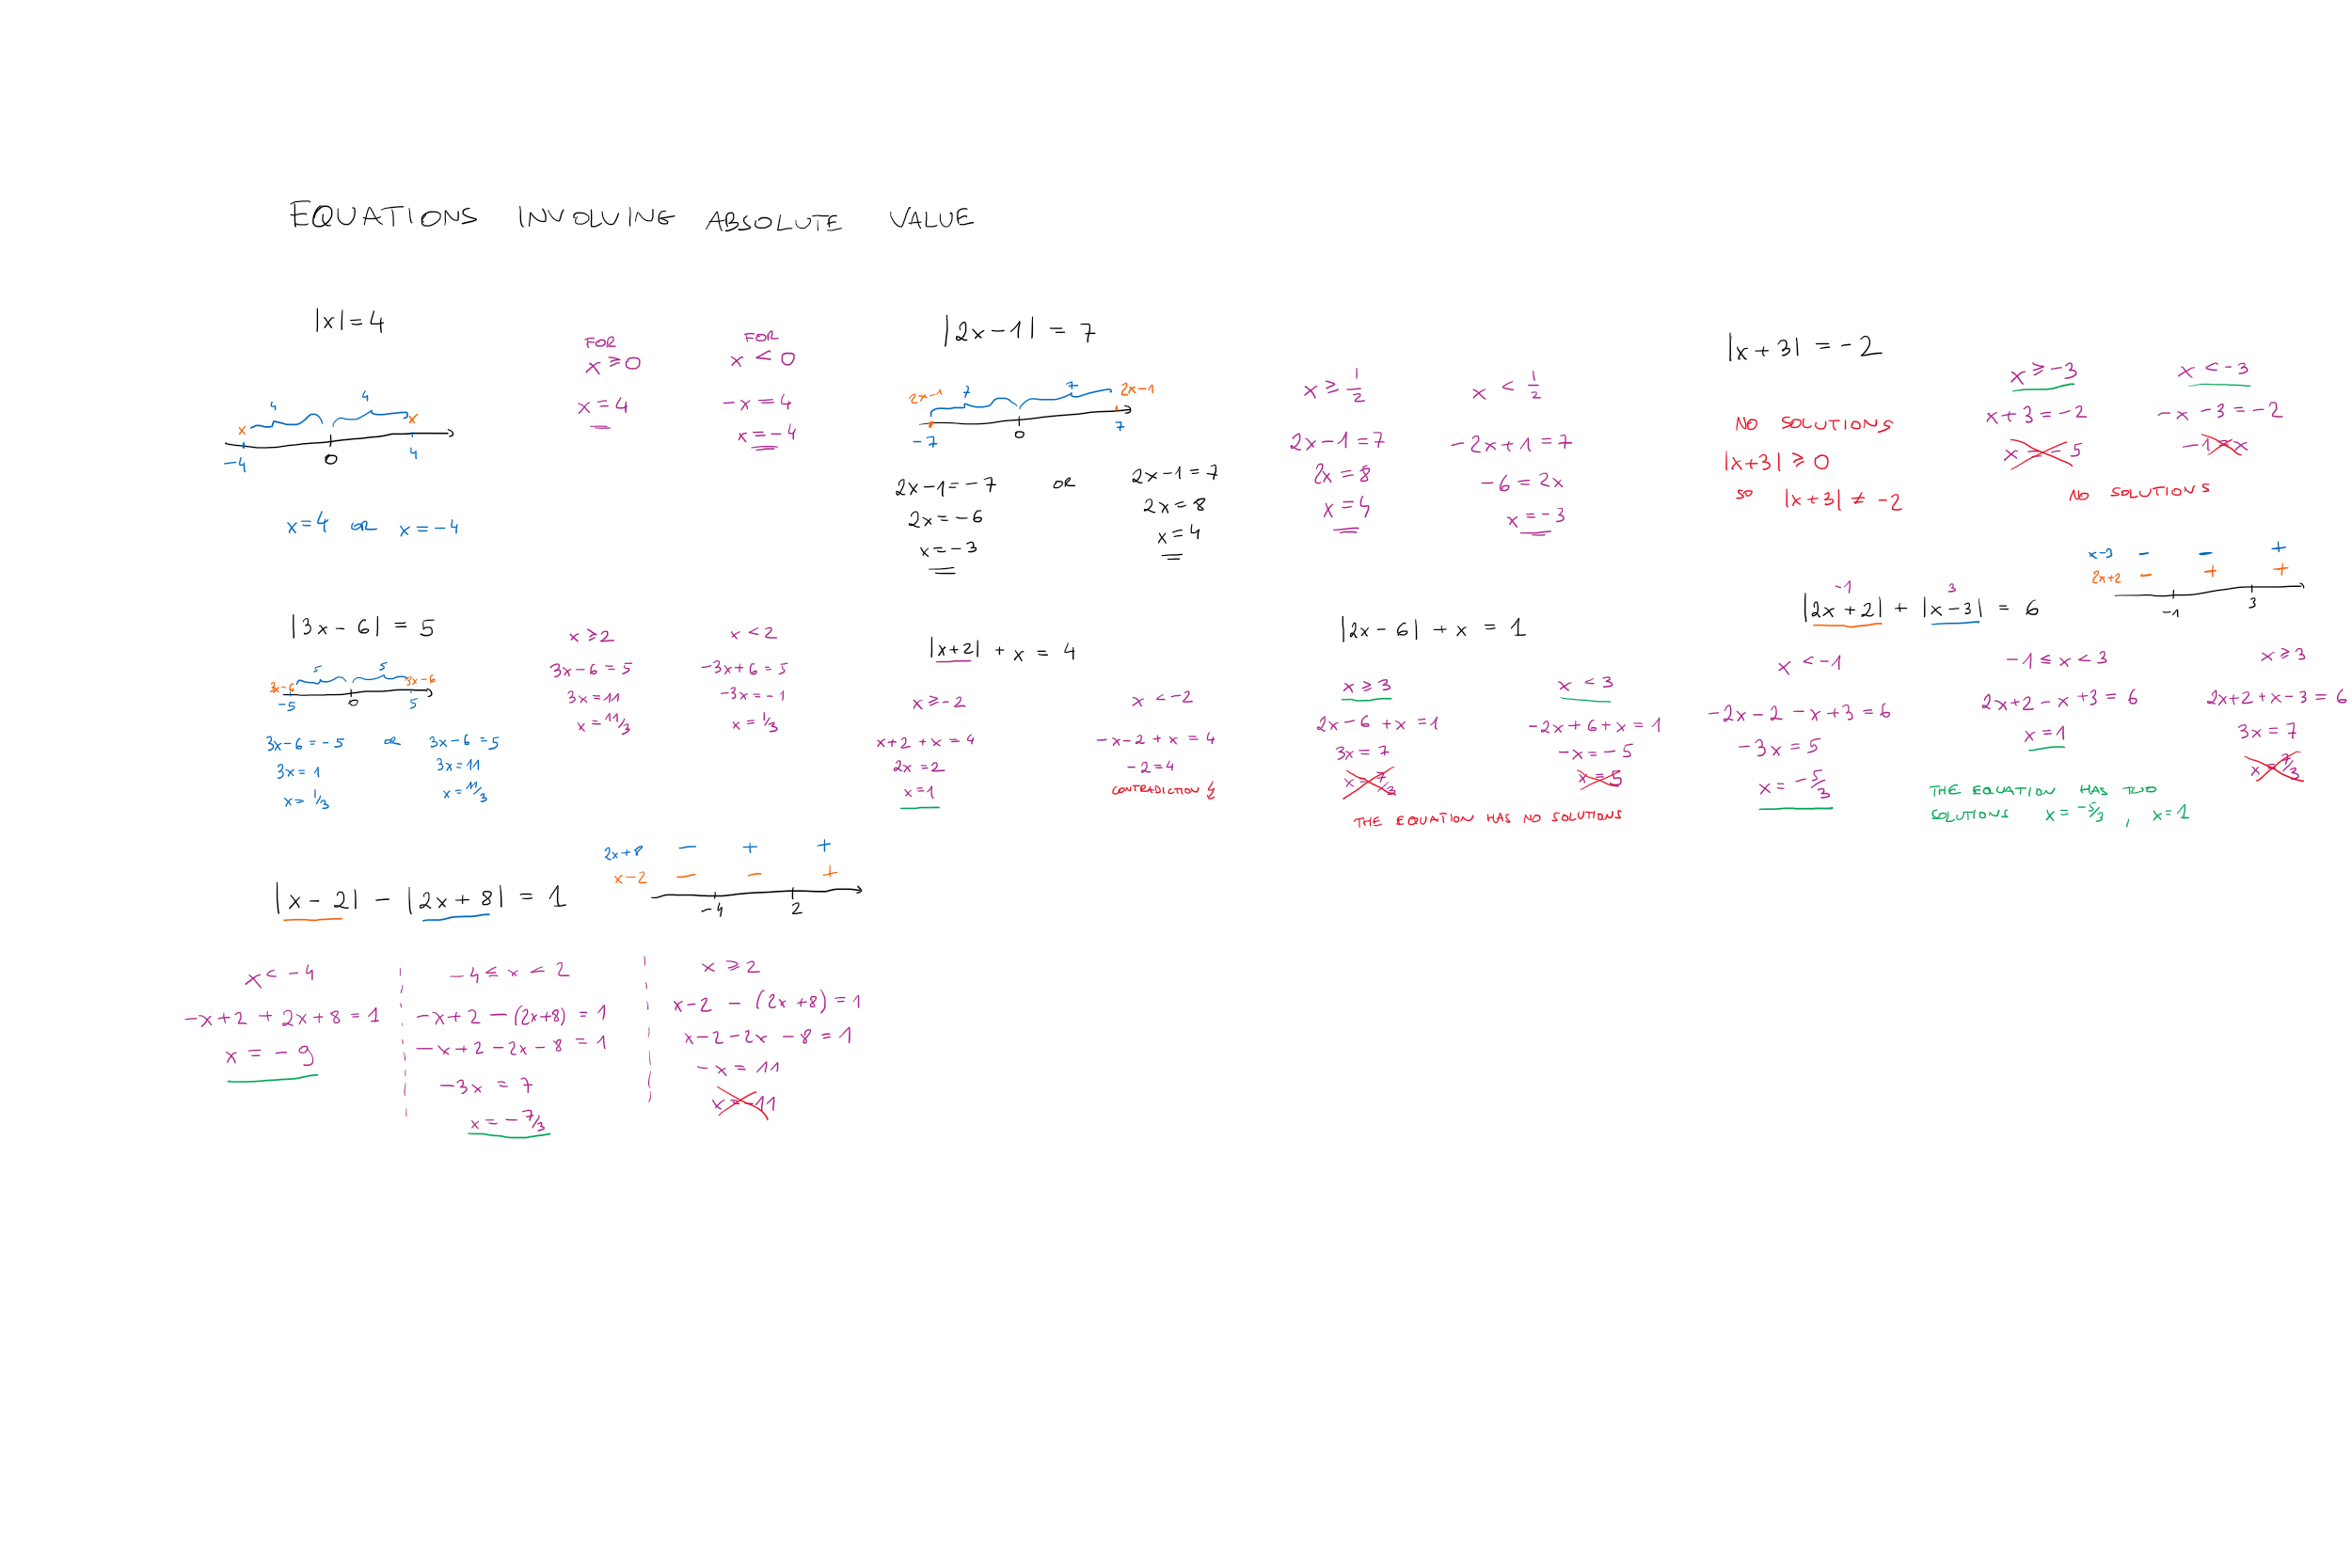 EQUATIONS INVOLVING ABSOLUTE VALUE
|x| = 4
4 4
x x
-4 0 4
x=4 OR x=-4
FOR
x ⩾ 0
x = 4
FOR
x < 0
-x = 4
x = -4
|2x-1| = 7
2x-1 7 7 2x-1
-7 0 7
2x-1 = -7 OR 2x-1 = 7
2x = -6 2x = 8
x = -3 x = 4
x ≥ 1/2
2x-1 = 7
2x = 8
x = 4
x < 1/2
-2x+1 = 7
-6 = 2x
x = -3
|x+3| = -2
NO SOLUTIONS
|x+3| ⩾ 0
SO |x+3| ≠ -2
x ⩾ -3
x+3 = -2
x = -5
x < -3
-x-3 = -2
-1 = x
NO SOLUTIONS
|3x-6| = 5
5 5
3x-6 3x-6
-5 0 5
3x-6 = -5 OR 3x-6 = 5
3x = 1 3x = 11
x = 1/3 x = 11/3
x ⩾ 2
3x-6 = 5
3x = 11
x = 11/3
x < 2
-3x+6 = 5
-3x = -1
x = 1/3
|x+2| + x = 4
x ⩾ -2
x+2+x = 4
2x = 2
x = 1
x < -2
-x-2+x = 4
-2 = 4
CONTRADICTION
|2x-6| + x = 1
x ⩾ 3
2x-6+x = 1
3x = 7
x = 7/3
x < 3
-2x+6+x = 1
-x = -5
x = 5
THE EQUATION HAS NO SOLUTIONS
-1 3
|2x+2| + |x-3| = 6
x-3 - - +
2x+2 - + +
-1 3
x < -1
-2x-2-x+3 = 6
-3x = 5
x = -5/3
-1 ≤ x < 3
2x+2-x+3 = 6
x = 1
x ⩾ 3
2x+2+x-3 = 6
3x = 7
x = 7/3
THE EQUATION HAS TWO
SOLUTIONS x = -5/3 , x = 1
|x-2| - |2x+8| = 1
2x+8 - + +
x-2 - - +
-4 2
x < -4
-x+2+2x+8 = 1
x = -9
-4 ≤ x < 2
-x+2-(2x+8) = 1
-x+2-2x-8 = 1
-3x = 7
x = -7/3
x ⩾ 2
x-2-(2x+8) = 1
x-2-2x-8 = 1
-x = 11
x = -11